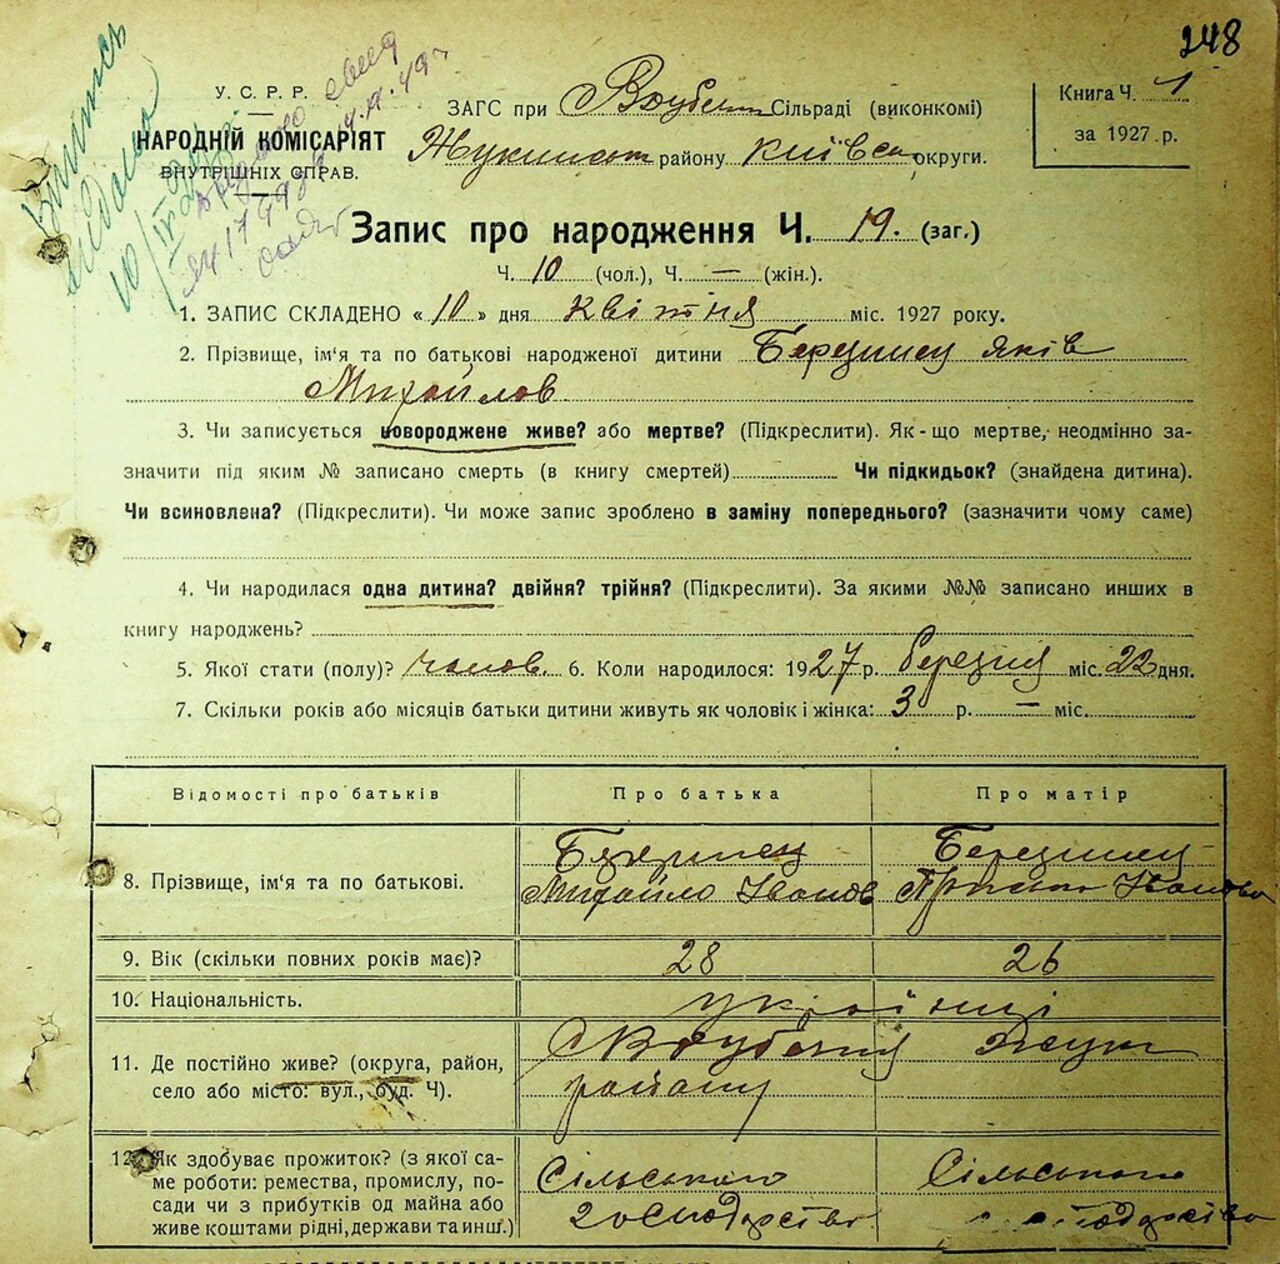 248
У. С. Р. Р.
НАРОДНІЙ КОМІСАРІЯТ
ВНУТРІШНІХ СПРАВ.
ЗАГС при Сільраді (виконкомі)
району Київськ округи.
Книга Ч. 1
за 1927 р.
Выпись
10/IV
Запис про народження Ч. 19. (заг.)
Ч. 10 (чол.), Ч. — (жін.).
1. ЗАПИС СКЛАДЕНО « 10 » дня квітня міс. 1927 року.
2. Прізвище, ім'я та по батькові народженої дитини Яків
Михайлов
3. Чи записується новороджене живе? або мертве? (Підкреслити). Як-що мертве, неодмінно за-
значити під яким № записано смерть (в книгу смертей) Чи підкидьок? (знайдена дитина).
Чи всиновлена? (Підкреслити). Чи може запис зроблено в заміну попереднього? (зазначити чому саме)
4. Чи народилася одна дитина? двійня? трійня? (Підкреслити). За якими №№ записано инших в
книгу народжень?
5. Якої стати (полу)? чолов. 6. Коли народилося: 1927 р. березня міс. 22 дня.
7. Скільки років або місяців батьки дитини живуть як чоловік і жінка: 3 р. — міс.
Відомості про батьків Про батька Про матір
8. Прізвище, ім'я та по батькові.
Михайло Іванов Іванова
9. Вік (скільки повних років має)? 28 26
10. Національність. українці
11. Де постійно живе? (округа, район,
село або місто: вул., буд. Ч).
району
12. Як здобуває прожиток? (з якої са-
ме роботи: ремества, промислу, по-
сади чи з прибутків од майна або
живе коштами рідні, держави та инш.)
Сільського Сільського
господарство господарство